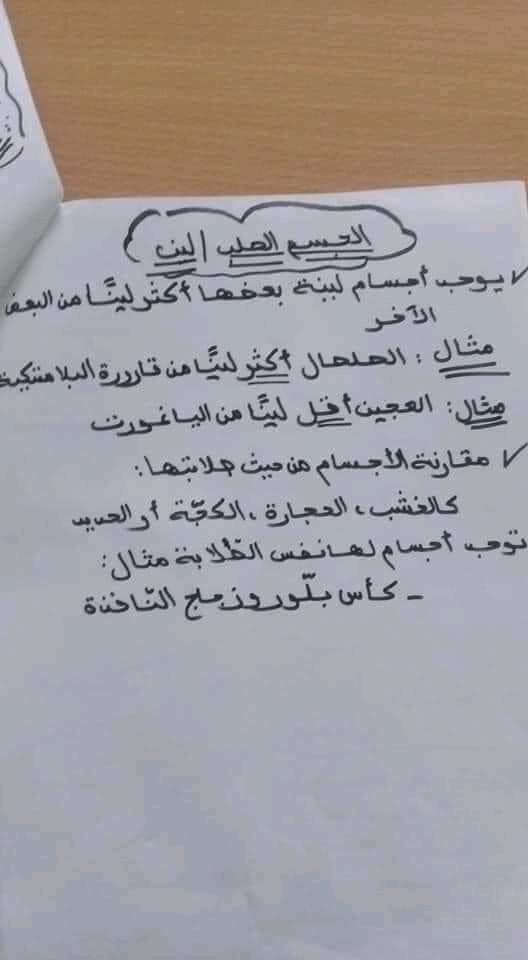 الجسم الصلب / لين
✓ يوجد أجسام لينة بعضها أكثر لينًا من البعض
الآخر
مثال : الصلصال أكثر لينًا من قارورة البلاستيكية
مثال : العجين أقل لينًا من الياغورت
✓ مقارنة الأجسام من حيث صلابتها :
كالخشب ، الحجارة ، الكجّة أو الحديد
توجد أجسام لها نفس الصّلابة مثال :
- كأس بلّور وزجاج النّافذة